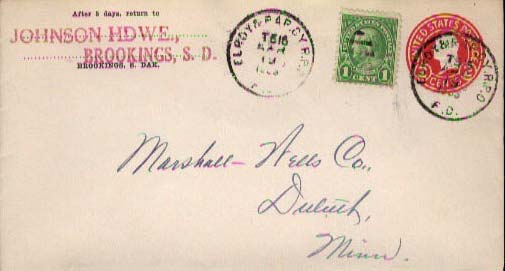 After 5 days, return to
JOHNSON HDWE.,
BROOKINGS, S. D.
BROOKINGS, S. DAK.
ELROY & R.P.O.
T516
MAR
19
1 CENT 1
UNITED STATES
2 CENTS 2
R.P.O
Marshall-Wells Co.,
Duluth,
Minn.